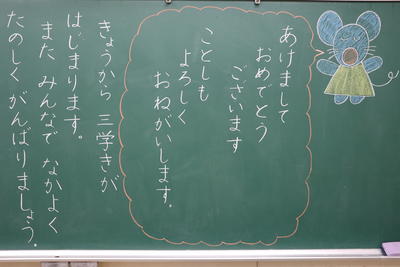 あけまして
おめでとう
ございます
ことしも
よろしく
おねがいします。
きょうから 三学きが
はじまります。
また みんなで なかよく
たのしく がんばりましょう。